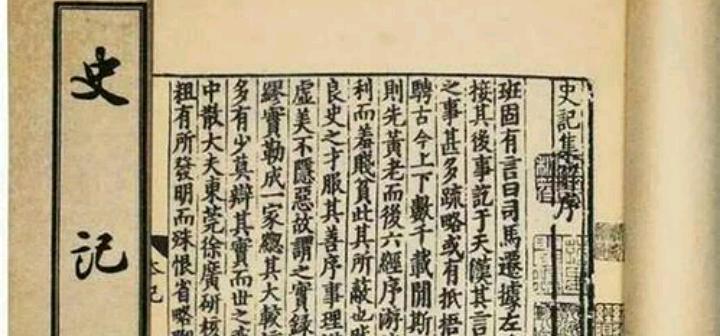 史記集解序
班固有言曰司馬遷據左
接其後事訖于天漢其言
之事甚多疏略或有抵捂
騁古今上下數千載閒斯
則先黃老而後六經序游
利而羞賤貧此其所蔽也
良史之才服其善序事理
虛美不隱惡故謂之實錄
繆實勒成一家緫其大較
多有少莫辯其實而世之
中散大夫東莞徐廣研核
粗有所發明而殊恨省略
史記